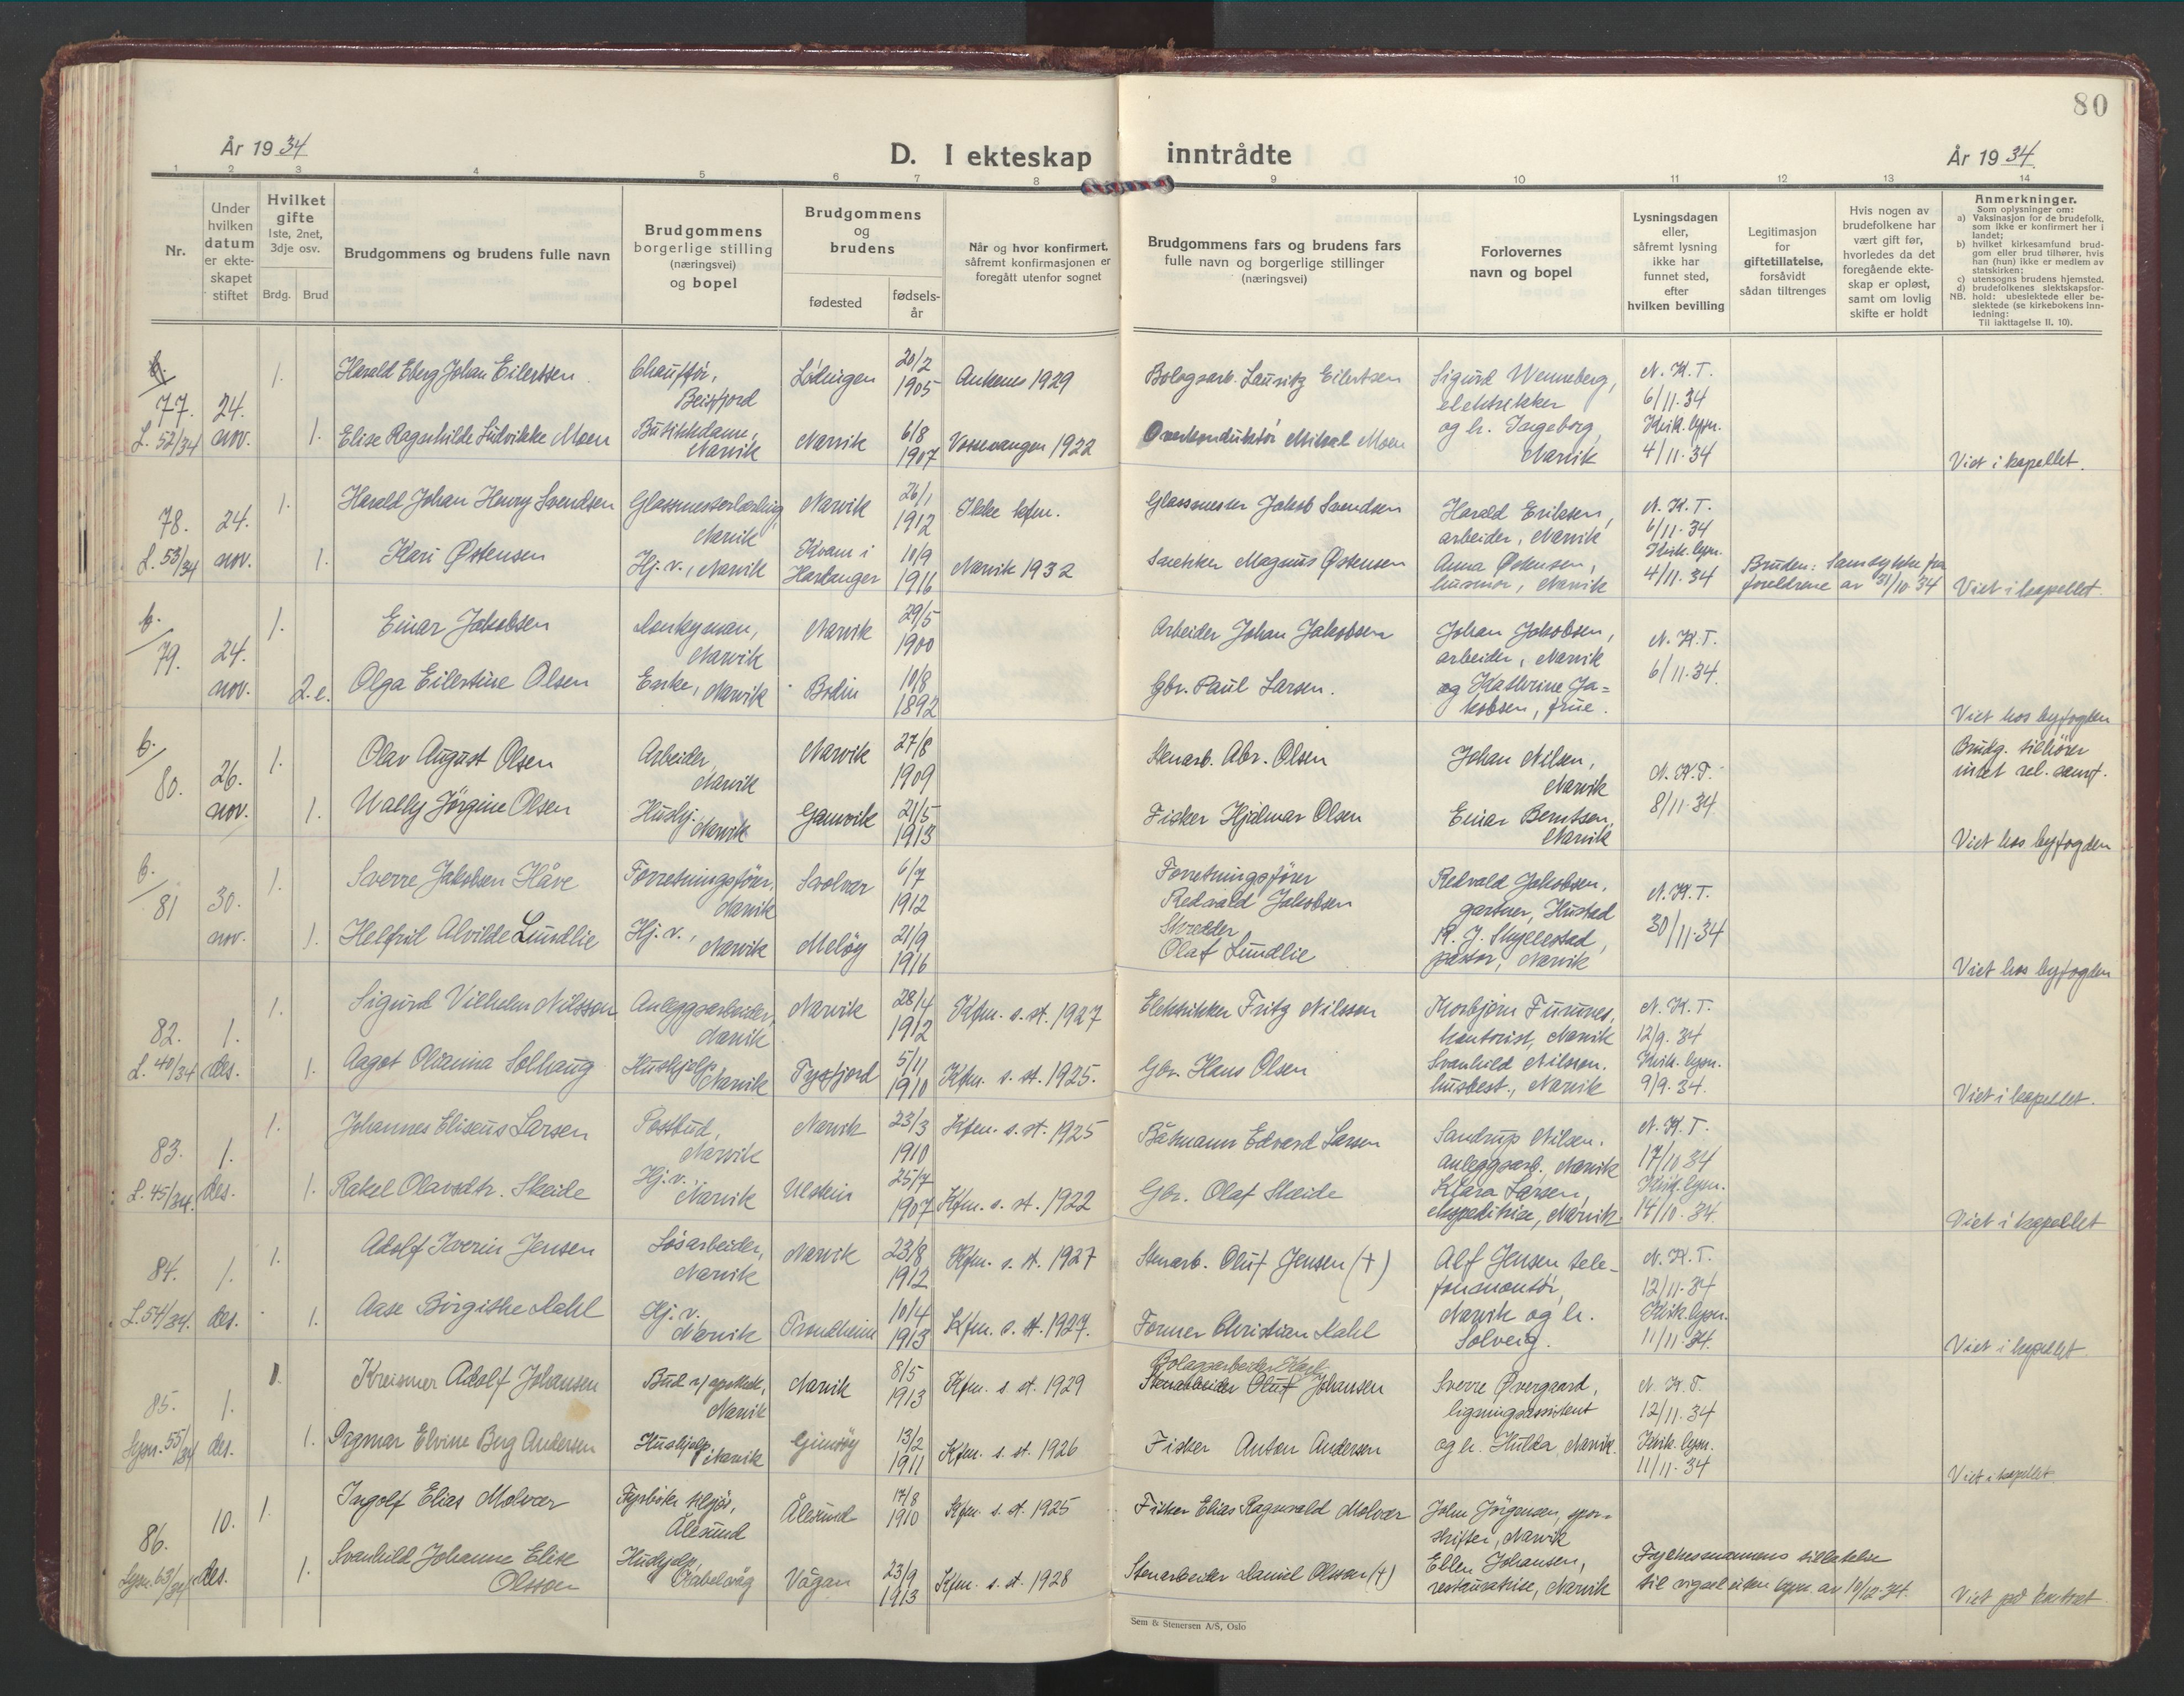 80
År 1934
D. I ekteskap inntrådte
År 1934
1 2 3 4 5 6 7 8 9 10 11 12 13 14
Nr.
Under hvilken datum er ekteskapet stiftet
Hvilket gifte
1ste, 2net, 3dje osv.
Brdg. Brud
Brudgommens og brudens fulle navn
Brudgommens borgerlige stilling (næringsvei) og bopel
Brudgommens og brudens
fødested
fødselsår
Når og hvor konfirmert,
såfremt konfirmasjonen er
foregått utenfor sognet
Brudgommens fars og brudens fars
fulle navn og borgerlige stillinger
(næringsvei)
Forlovernes
navn og bopel
Lysningsdagen
eller,
såfremt lysning
ikke har
funnet sted,
efter
hvilken bevilling
Legitimasjon
for
giftetillatelse,
forsåvidt
sådan tiltrenges
Hvis nogen av
brudefolkene har
vært gift før,
hvorledes da det
foregående ekte-
skap er opløst,
samt om lovlig
skifte er holdt
Anmerkninger.
Som oplysninger om:
a) Vaksinasjon for de brudefolk,
som ikke er konfirmert her i
landet;
b) hvilket kirkesamfund brud-
gom eller brud tilhører, hvis
han (hun) ikke er medlem av
statskirken;
c) utensogns brudens hjemsted.
d) brudefolkenes slektskapsfor-
NB. hold: ubeslektede eller be-
slektede (se kirkebokens inn-
ledning:
Til iakttagelse II. 10).
77. 24. 1. Harald Eberg Johan Eilertsen Chauffør, Beisfjord Lødingen 20/2 1905 Ankenes 1929 Bologsarb. Lauritz Eilertsen Sigurd Wenneberg, elektrikker N.K.T. 6/11.34
L. 52/34 nov. 1. Elise Ragnhilde Ludvikke Moen Butikkdame, Narvik Narvik 6/8 1907 Vossevangen 1922 Overkonduktør Mikal Moen og h. Ingeborg, Narvik Kirk. lysn. 4/11.34 Viet i kapellet.
78. 24. 1. Harald Johan Henry Svendsen Glassmesterlærling, Narvik Narvik 26/1 1912 Ikke kfm. Glassmester Jakob Svendsen Harald Eriksen, arbeider, Narvik N.K.T. 6/11.34
L. 53/34 nov. 1. Kari Østensen Hj. v., Narvik Kvam i Hardanger 10/9 1916 Narvik 1932 Snekker Magnus Østensen Anna Østensen, husmor, Narvik Kirk. lysn. 4/11.34 Bruden: Samtykke fra foreldrene av 31/10 34 Viet i kapellet.
b. 79. 24. 1. Einar Jakobsen Donkeyman, Narvik Narvik 29/5 1900 Arbeider Johan Jakobsen Johan Jakobsen, arbeider, Narvik N.K.T. 6/11.34
nov. 2. e. Olga Eilertine Olsen Enke, Narvik Bodin 10/8 1892 Gbr. Paul Larsen. og Kathrine Ja= kobsen, frue. Viet hos byfogden
b. 80. 26. 1. Olav August Olsen Arbeider, Narvik Narvik 27/8 1909 Stenarb. Abr. Olsen Johan Nilsen, Narvik N.K.T. 8/11.34 Brudg. tilhører intet rel. samf.
nov. 1. Wally Jørgine Olsen Hushj. Narvik Gamvik 21/5 1913 Fisker Hjalmar Olsen Einar Berntsen, Narvik Viet hos byfogden
b. 81 30. 1. Sverre Jakobsen Håve Forretningsfører, Narvik Svolvær 6/7 1912 Forretningsfører Redvald Jakobsen Redvald Jakobsen, gartner, Hustad N.K.T. 30/11.34
nov. 1. Helfrid Alvilde Lundlie Hj. v., Narvik Meløy 21/9 1916 Skredder Olaf Lundlie pastor, Narvik Viet hos byfogden
82. 1. 1. Sigurd Vilhelm Nilsson Anleggsarbeider, Narvik Narvik 28/4 1912 Kfm. s. st. 1927 Elektrikker Fritz Nilsson Thorbjørn Furunes, kontorist, Narvik N.K.T. 12/9.34
L. 40/34 des. 1. Aagot Olianna Solhaug Hushjelp, Narvik Tysfjord 5/11 1910 Kfm. s. st. 1925. Gbr. Hans Olsen Svanhild Nilsson, husbest., Narvik Kirk. lysn. 9/9.34. Viet i kapellet.
83. 1. 1. Johannes Eliseus Larsen Postbud, Narvik Narvik 23/3 1910 Kfm. s. st. 1925 Båtmann Edvard Larsen Sandrup Nilsen, anleggsarb., Narvik N.K.T. 17/10 34
L. 45/34. des. 1. Rakel Olavsdtr. Skeide Hj. v., Narvik Ulstein 25/7 1907 Kfm. s. st. 1922 Gbr. Olaf Skeide Klara Larsen, ekspeditrise, Narvik Kirk. lysn. 14/10.34. Viet i kapellet
84. 1. 1. Adolf Iverin Jensen Løsarbeider, Narvik Narvik 23/8 1912 Kfm. s. st. 1927 Stenarb. Oluf Jensen (+) Alf Jensen telefonmontør, N.K.T. 12/11.34
L. 54/34. des. 1. Aase Birgithe Dahl Hj. v. Narvik Trondheim 10/4 1913 Kfm. s. st. 1927. Former Christian Dahl Narvik og h. Solveig. Kirk. lysn. 11/11.34. Viet i kapellet
85. 1. 1. Kreismer Adolf Johansen Bud v/ apothek, Narvik Narvik 8/5 1913 Kfm. s st. 1929 Bolagsarbeider Karl Stenarbeider Oluf Johansen Sverre Øvergaard, ligningsassistent N.K.T. 12/11.34
Lysn. 55/34 des. 1. Dagmar Elvine Berg Andersen Hushjelp, Narvik Gimsøy 13/2 1911 Kfm. s. st. 1926 Fisker Anton Andersen og h. Hulda, Narvik. Kirk. lysn. 11/11.34 Viet i kapellet.
86. 10. 1. Ingolf Elias Molvær Fyrbøter tilsjøs, Ålesund Ålesund 17/8 1910 Kfm. s. st. 1925 Fisker Elias Ragnvald Molvær John Jørgensen, sporskifter, Narvik
Lysn. 63/34 des. 1. Svanhild Johanne Elise Olsson Hushjelp, Kabelvåg Vågan 23/9 1913 Kfm. s. st. 1928 Stenarbeider Daniel Olsson (+) Ellen Johansen, restauratrise, Narvik Fylkesmannens tillatelse til vigsel uten lysn. av 10/12.34. Viet på kontoret.
Sem & Stenersen A/S, Oslo